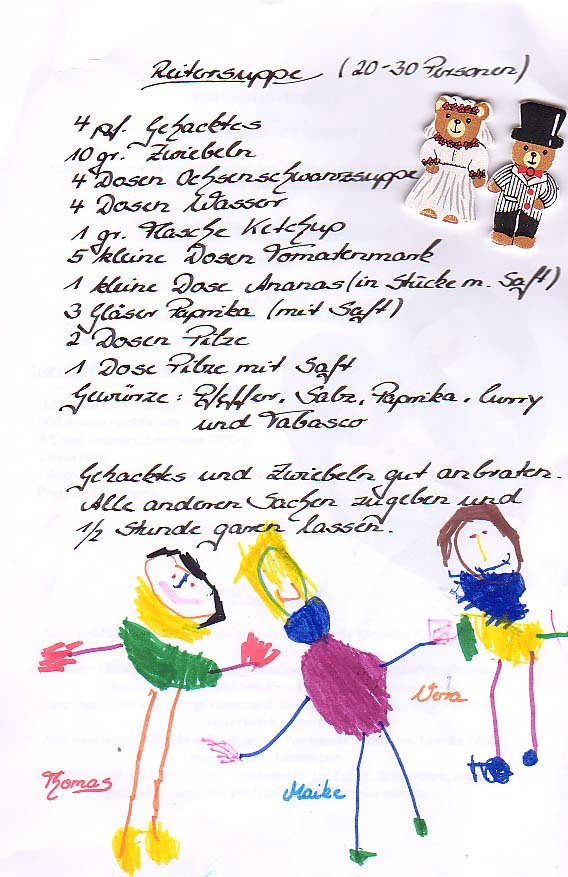 Reitersuppe (20-30 Personen)
4 Pf. Gehacktes
10 gr. Zwiebeln
4 Dosen Ochsenschwanzsuppe
4 Dosen Wasser
1 gr. Flasche Ketchup
5 kleine Dosen Tomatenmark
1 kleine Dose Ananas (in Stücke m. Saft)
3 Gläser Paprika (mit Saft)
2 Dosen Pilze
1 Dose Pilze mit Saft
Gewürze: Pfeffer, Salz, Paprika, Curry
und Tabasco
Gehacktes und Zwiebeln gut anbraten.
Alle anderen Sachen zugeben und
1/2 Stunde garen lassen.
Vera
Thomas
Maike